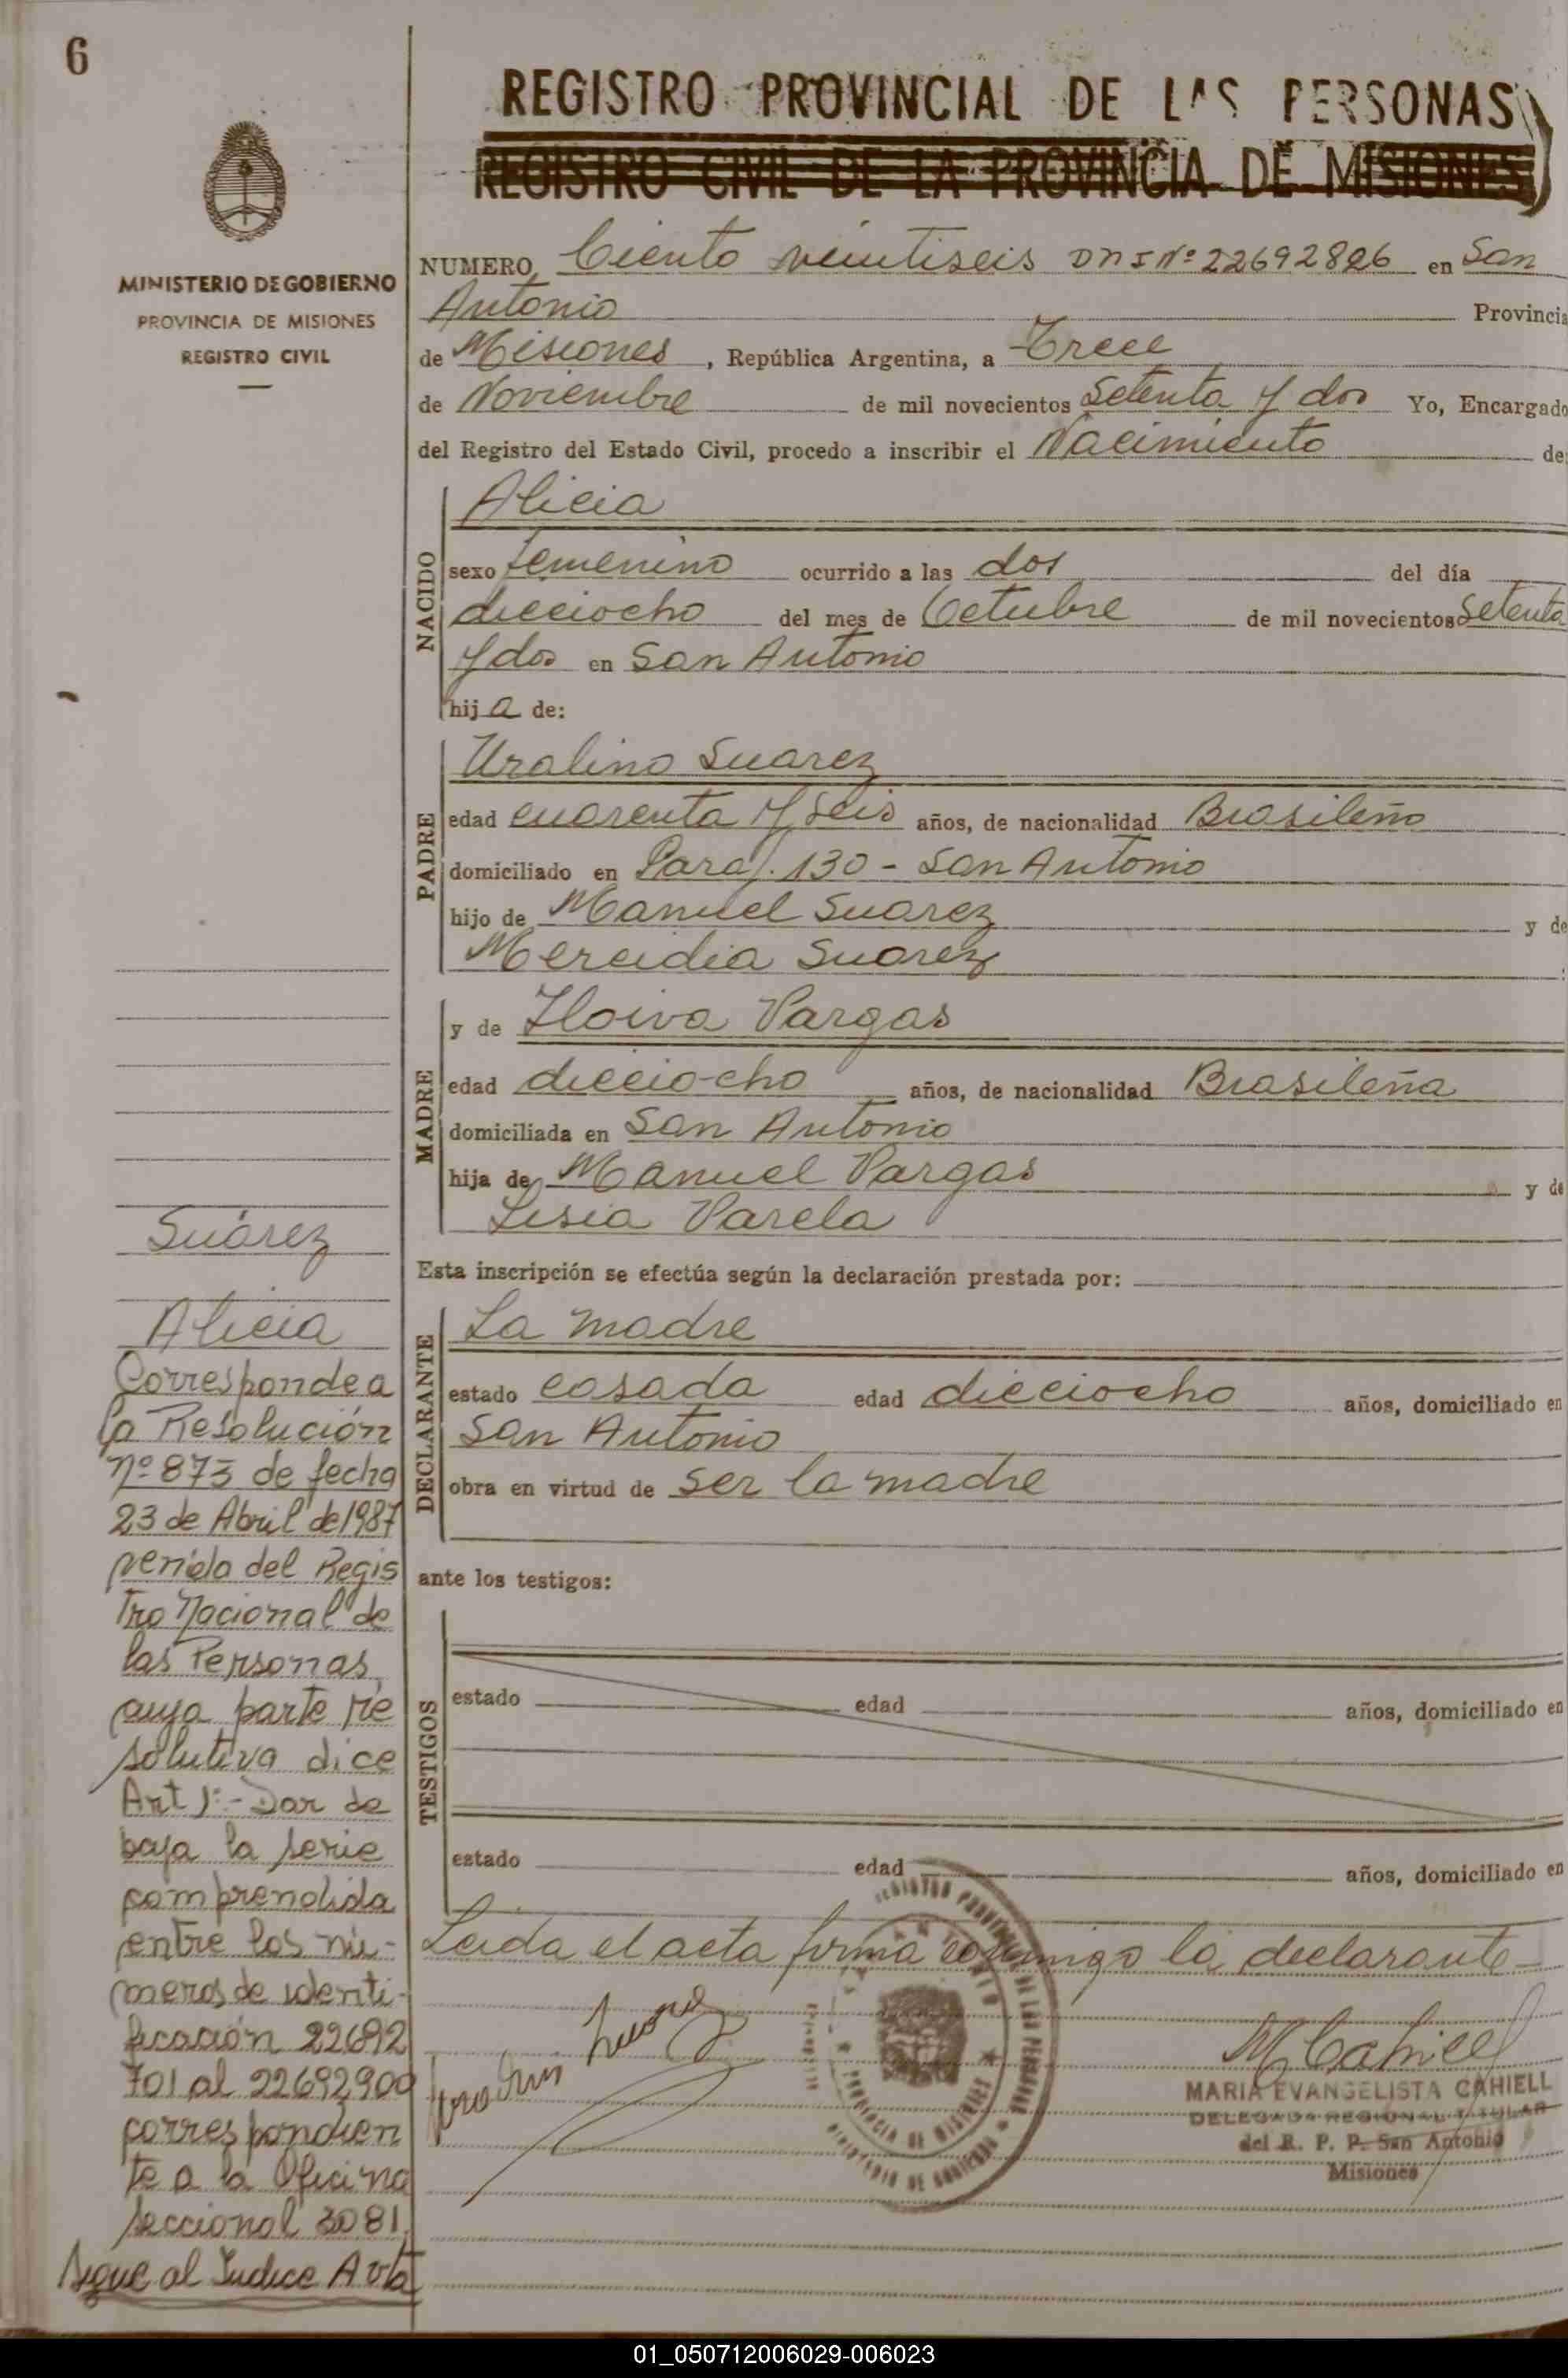 6
REGISTRO PROVINCIAL DE LAS PERSONAS
REGISTRO CIVIL DE LA PROVINCIA DE MISIONES
MINISTERIO DE GOBIERNO
PROVINCIA DE MISIONES
REGISTRO CIVIL
NUMERO Ciento veintiseis DNI Nº 22692826 en San
Antonio Provincia
de Misiones, República Argentina, a Trece
de Noviembre de mil novecientos Setenta y dos Yo, Encargado
del Registro del Estado Civil, procedo a inscribir el Nacimiento de
NACIDO
Alicia
sexo femenino ocurrido a las dos del día
dieciocho del mes de Octubre de mil novecientos Setenta
y dos en San Antonio
hija de:
PADRE
Uralino Suarez
edad cuarenta y seis años, de nacionalidad Brasileño
domiciliado en Paraj. 130 - San Antonio
hijo de Manuel Suarez y de
Mercidia Suarez
MADRE
y de Iloiva Vargas
edad dieciocho años, de nacionalidad Brasileña
domiciliada en San Antonio
hija de Manuel Vargas y de
Lisia Varela
Esta inscripción se efectúa según la declaración prestada por:
DECLARANTE
La madre
estado casada edad dieciocho años, domiciliado en
San Antonio
obra en virtud de ser la madre
ante los testigos:
TESTIGOS
estado edad años, domiciliado en
estado edad años, domiciliado en
Leida el acta firma conmigo la declarante
MARIA EVANGELISTA CAHIELL
DELEGADA REGIONAL TITULAR
del R. P. P. San Antonio
Misiones
Suárez
Alicia
Corresponde a
la Resolución
nº 873 de fecha
23 de Abril de 1987
venida del Regis
tro Nacional de
las Personas,
cuya parte re
solutiva dice
Art 1º:- Dar de
baja la serie
comprendida
entre los nú-
meros de identi-
ficación 22692
701 al 22692900
correspondien
te a la Oficina
Seccional 3081.
Sigue al Indice A vta
01_050712006029-006023